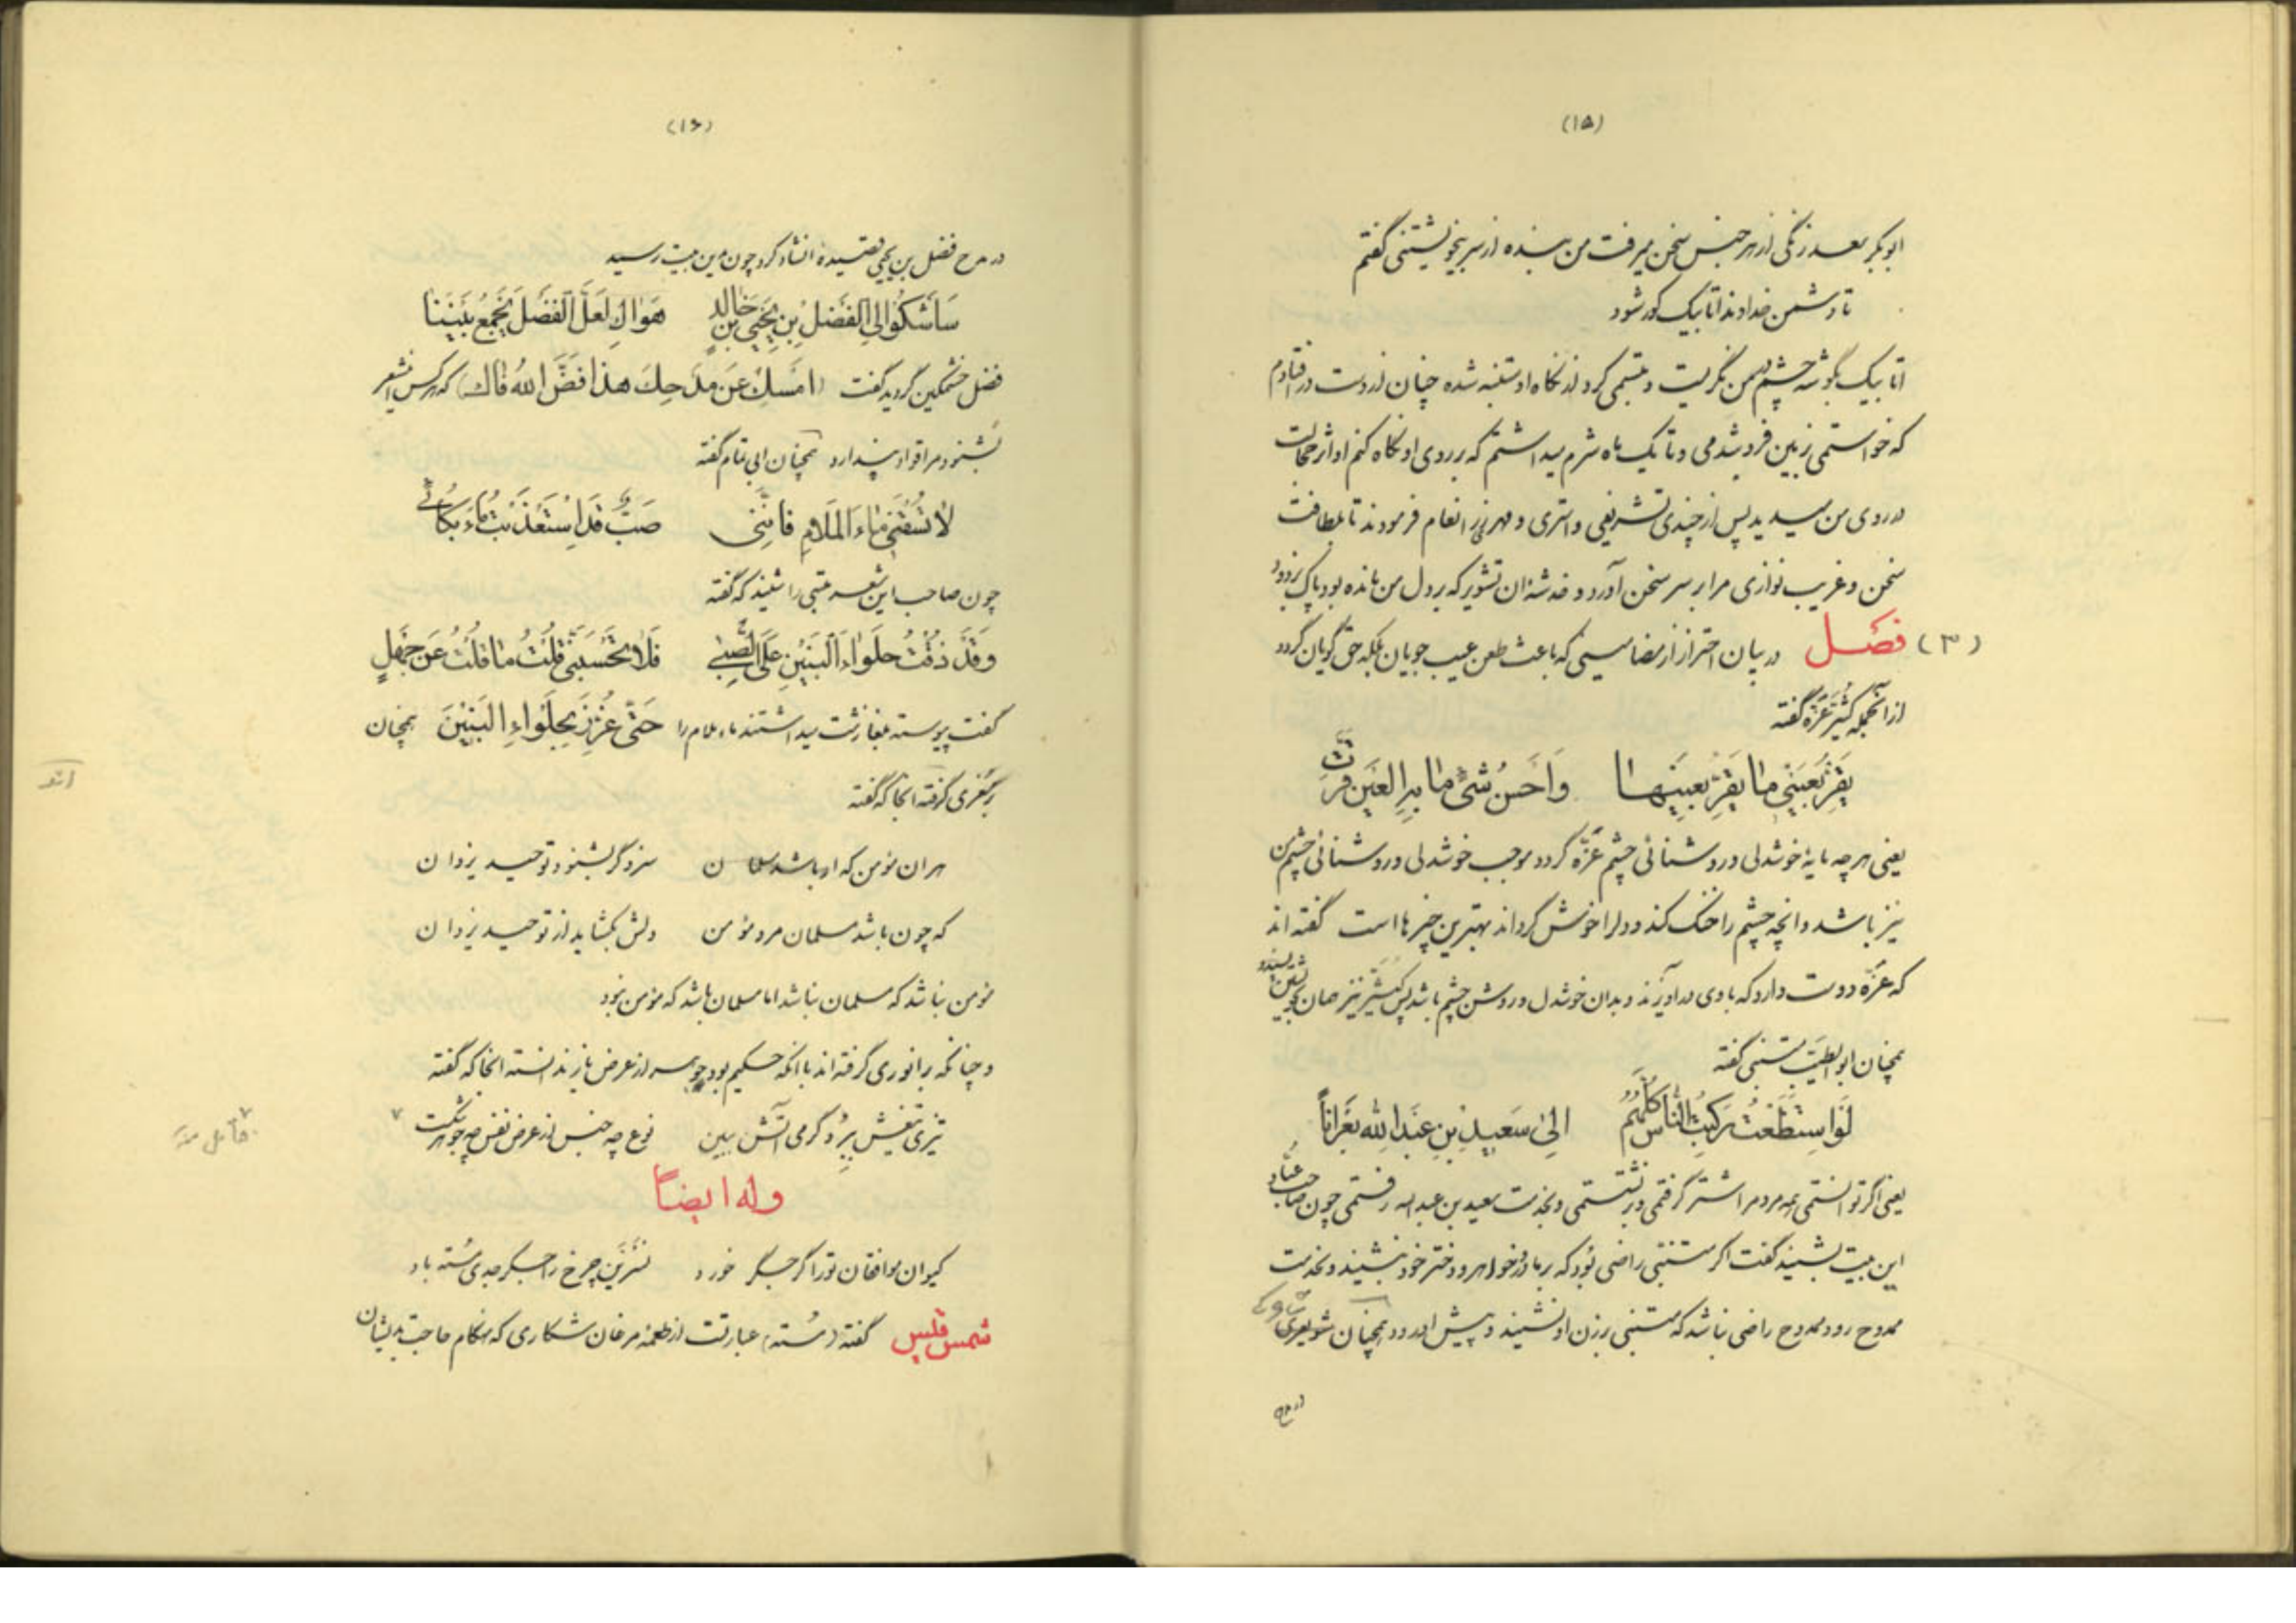 (۱۵)
ابوبکر سعد زنگی از هر جنس سخن میرفت من بنده از سر بیخویشتنی گفتم
تا دشمن خداوند اتابیک کور شود
اتابیک بگوشه چشم بمن نگریست و تبسمی کرد از نگاه او متنبه شده چنان از دست در افتادم
که خواستمی زمین فرو شدمی و تا یک ماه شرم میداشتم که بر روی او نگاه کنم او اثر خجالت
در روی من میدید پس از چندی تشریفی و استری و مهر زر انعام فرمودند تا بلطافت
سخن و غریب نوازی مرا بر سر سخن آورد و خدشهٔ ان تشویر که بر دل من مانده بود پاک بزدود
(۳) فصل در بیان احتراز از مضامینی که باعث طعن عیب جویان بلکه حق گویان گردد
از آنجمله کُثَیِّر عَزّه گفته
یَقِرُّ بِعَیْنی مٰا یَقِرُّ بِعَیْنِهٰا وَاَحْسَنُ شَیْءٍ مٰا بِهِ العَیْنُ قَرَّتِ
یعنی هرچه مایهٔ خوشدلی و روشنائی چشم عَزّه گردد موجب خوشدلی و روشنائی چشم من
نیز باشد و انچه چشم را خنک کند و دلرا خوش گرداند بهترین چیزها است گفته اند
که عَزّه دوست دارد که با وی در آویزند و بدان خوشدل و روشن چشم باشد پس کُثَیِّر نیز همان بخویشتن پسندد
همچنان ابوالطیب متنبی گفته
لَوِ اسْتَطَعْتُ رَکِبْتُ النّٰاسَ کُلَّهُمُ اِلیٰ سَعِیدِ بْنِ عَبْدِ اللهِ بُعْرَاناً
یعنی اگر توانستمی همه مردم را شتر گرفتمی و بر نشستمی و بخدمت سعید بن عبدالله رفتمی چون صاحب عبّاد
این بیت بشنید گفت اگر متنبی راضی بُوَد که بر مادر و خواهر و دختر خود نشیند و بخدمت
ممدوح رود ممدوح راضی نباشد که متنبی بر زن او نشیند و پیش او رود همچنان شویعری
در مدح
(۱۶)
در مدح فضل بن یحیی قصیدهٔ انشاد کرد چون بدین بیت رسید
سَأَشْکُوا اِلَی الفَضْلِ بْنِ یَحْیَی بْنِ خٰالِدٍ هَوٰاكِ لَعَلَّ الفَضْلَ یَجْمَعُ بَیْنَنٰا
فضل خشمگین گردید گفت (امْسِكْ عَنْ مَدْحِكَ هذا فَضَّ اللهُ فٰاك) که هر کس این شعر
بشنود مرا قواد پندارد همچنان ابی تمام گفته
لٰا تَسْقِنی مٰاءَ المَلٰامِ فَاِنَّنی صَبٌّ قَدِ اسْتَعْذَبْتُ مٰاءَ بُکٰائی
چون صاحب این شعر متنبی را شنید که گفته
وَقَدْ ذُقْتُ حَلْوٰاءَ البَنینَ عَلَی الصِّبیٰ فَلٰا تَحْسَبَنّی قُلْتُ مٰا قُلْتُ عَنْ جَهْلٍ
گفت پیوسته بغایت زشت میداشتند ماء ملام را حَتّی عُزِّزَ بِحَلْوٰاءِ البَنینَ همچنان
بر مغزی گرفته انجا که گفته
هر ان مؤمن که او باشد مسلمان سزد گر بشنود توحید یزدان
که چون باشد مسلمان مرد مؤمن دلش بگشاید از توحید یزدان
مؤمن نباشد که مسلمان نباشد اما مسلمان باشد که مؤمن نبود
و چنانکه بر انوری گرفته اند با انکه حکیم بود جوهر از عرض باز ندانسته انجا که گفته
تیزی تیغش ببُر و گرمی آتش ببین نوع چه جنس از عرض نفس چه جوهر شکست
وله ایضاً
کیوان موافقان تو را گر جگر خورد نسرین چرخ را جگر جدی مُسته باد
شمس قیس گفته (مُسته) عبارتست از طعمهٔ مرغان شکاری که هنگام حاجت بدیشان